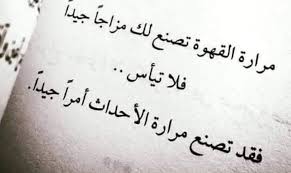 مرارة القهوة تصنع لك مزاجاً جيداً
فلا تيأس ..
فقد تصنع مرارة الأحداث أمراً جيداً.